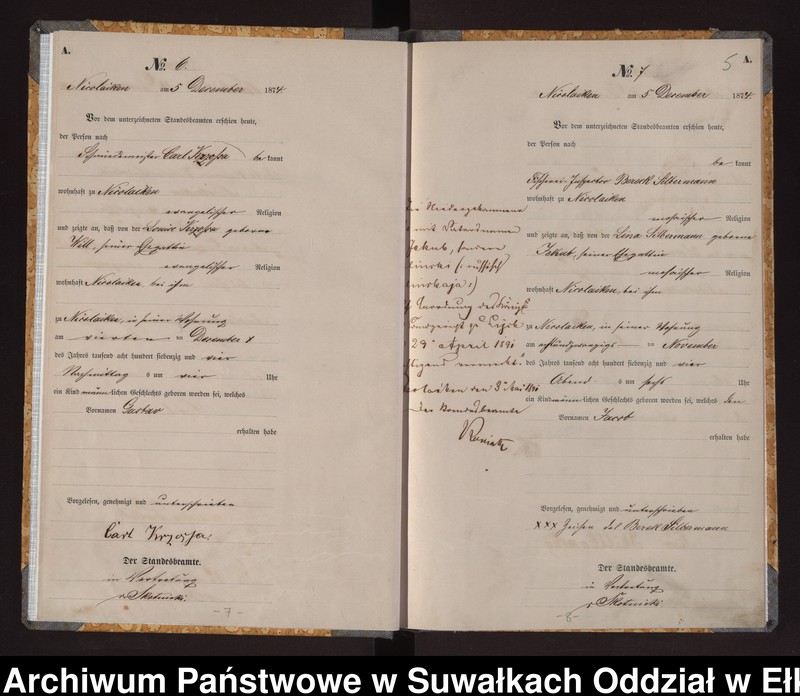 A.
No. 6.
Nicolaiken am 5 Dezember 1874.
Vor dem unterzeichneten Standesbeamten erschien heute,
der Person nach
Schmiedemeister Carl Krzossa bekannt
wohnhaft zu Nicolaiken
evangelischer Religion
und zeigte an, daß von der Louise Krzossa geborene
Will, seiner Ehegattin
evangelischer Religion
wohnhaft Nicolaiken, bei ihm
zu Nicolaiken, in seiner Wohnung
am vierten Dezember
des Jahres tausend acht hundert siebenzig und vier
Nachmittag s um vier Uhr
ein Kind männlichen Geschlechts geboren worden sei, welches
Vornamen Gustav
erhalten habe
Vorgelesen, genehmigt und unterschrieben
Carl Krzossa.
Der Standesbeamte.
in Vertretung
v Skotnicki.
- 7 -
5 A.
No. 7
Nicolaiken am 5 Dezember 1874.
Vor dem unterzeichneten Standesbeamten erschien heute,
der Person nach
bekannt
Fischerei Inspector Bereck Silbermann
wohnhaft zu Nicolaiken
mosaischer Religion
und zeigte an, daß von der Lina Silbermann geborene
Jakub, seiner Ehegattin
mosaischer Religion
wohnhaft Nicolaiken, bei ihm
zu Nicolaiken, in seiner Wohnung
am achtundzwanzigs November
des Jahres tausend acht hundert siebenzig und vier
Abend s um sechs Uhr
ein Kind männlichen Geschlechts geboren worden sei, welches den
Vornamen Jacob
erhalten habe
Vorgelesen, genehmigt und unterschrieben
xxx Zeichen des Bereck Silbermann
Der Standesbeamte.
in Vertretung
v Skotnicki
- 8 -
mit Vatersnamen
Jakub, sondern
Anordnung des Königl
29 April 1891
Der Standesbeamte
Archiwum Państwowe w Suwałkach Oddział w Eł